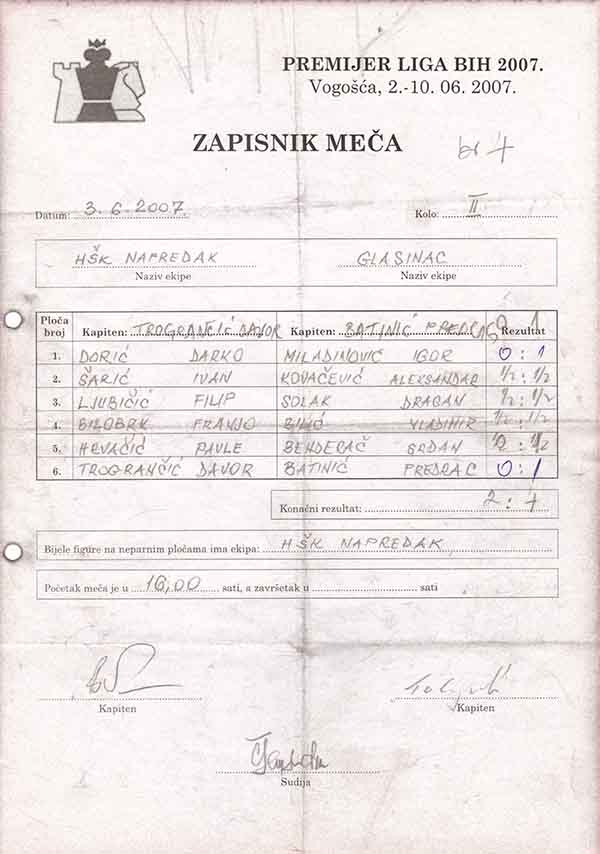 PREMIJER LIGA BIH 2007.
Vogošća, 2.-10. 06. 2007.
ZAPISNIK MEČA
Datum: 3.6.2007 Kolo: II
HŠK NAPREDAK GLASINAC
Naziv ekipe Naziv ekipe
Ploča broj Kapiten: TROGRANČIĆ DAVOR Kapiten: BATINIĆ PREDRAG Rezultat
1. DORIĆ DARKO MILADINOVIĆ IGOR 0 : 1
2. ŠARIĆ IVAN KOVAČEVIĆ ALEKSANDAR 1/2 : 1/2
3. LJUBIČIĆ FILIP SOLAK DRAGAN 1/2 : 1/2
4. BILOBRK FRANJO BILIĆ VLADIMIR 1/2 : 1/2
5. HRVAČIĆ PAVLE SRĐAN 1/2 : 1/2
6. TROGRANČIĆ DAVOR BATINIĆ PREDRAG 0 : 1
Konačni rezultat: 2 : 4
Bijele figure na neparnim pločama ima ekipa: HŠK NAPREDAK
Početak meča je u 16,00 sati, a završetak u sati
Kapiten Kapiten
Sudija